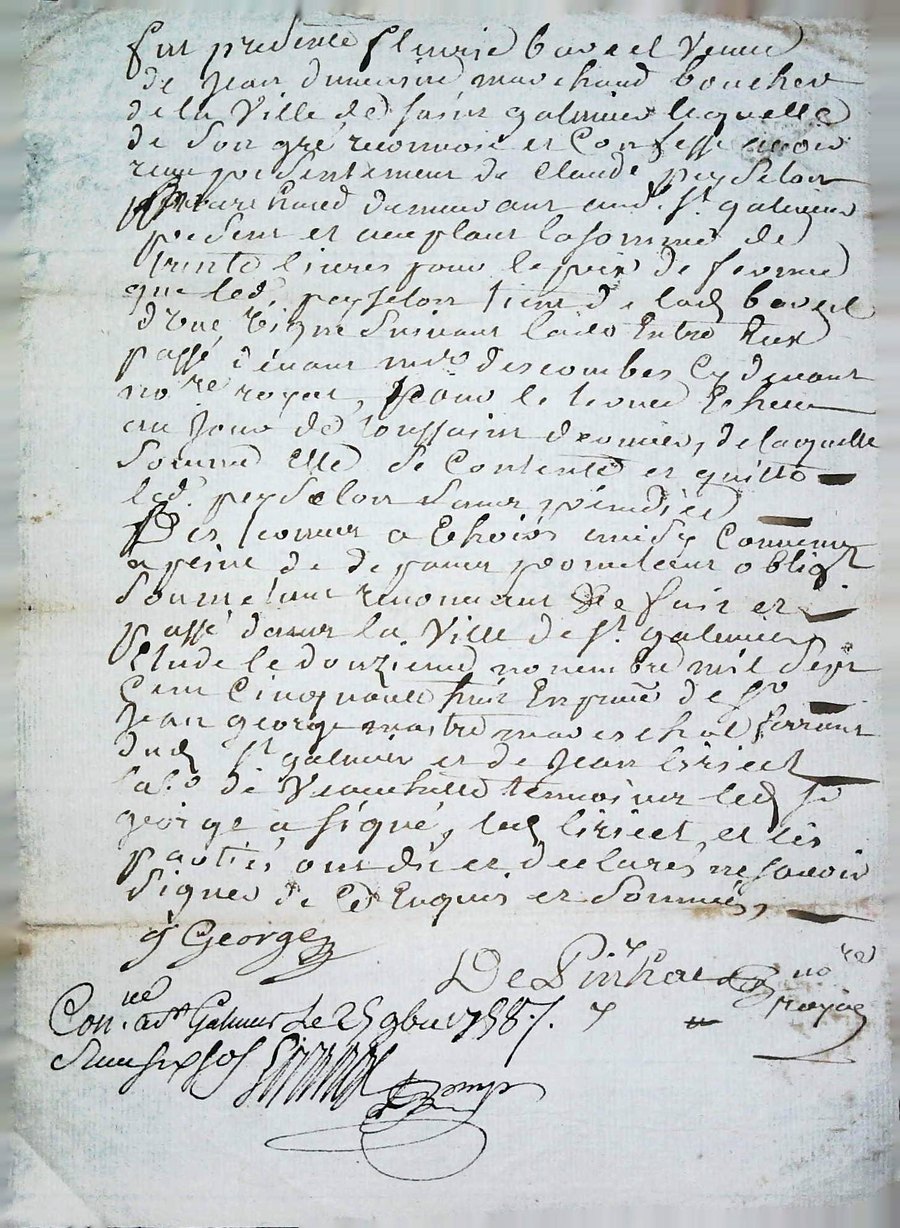 Fut presente Fleurie bavuel veuve
de Jean dumensin marchand boucher
de la Ville de saint galmier laquelle
de son gré reconnoit et Confesse avoir
reçu presentement de Claude peysselon
marchand demeurant aud. St. galmier
present et aceptant la somme de
trente livres pour le prix de ferme
que led. peysselon tient de lad bavuel
d'une vigne suivant l'acte Entre Eux
passé devant mre descombes cydevant
nore royal, pour le terme Echeu
au Jour de toussaint dernier, de laquelle
somme Elle se Contente et quitte
led. peysselon sans préjudice
Des termes a Echoir ainsy Convenu
a peine de de promettant oblig
soumettant renonceant &e fait et
passé dans la Ville de St. galmier
Etude le douzieme novembre mil sept
Cent Cinquante huit En prnce de sr
Jean george maitre mareschal ferrant
dud St galmier et de Jean
labr de temoins led sr
george a signé, led et les
parties ont dit et declarés ne savoir
signer de ce Enquis et sommés,
J George
De Pinhac nore
royal
Con.llé a St Galmier Le 25 9bre